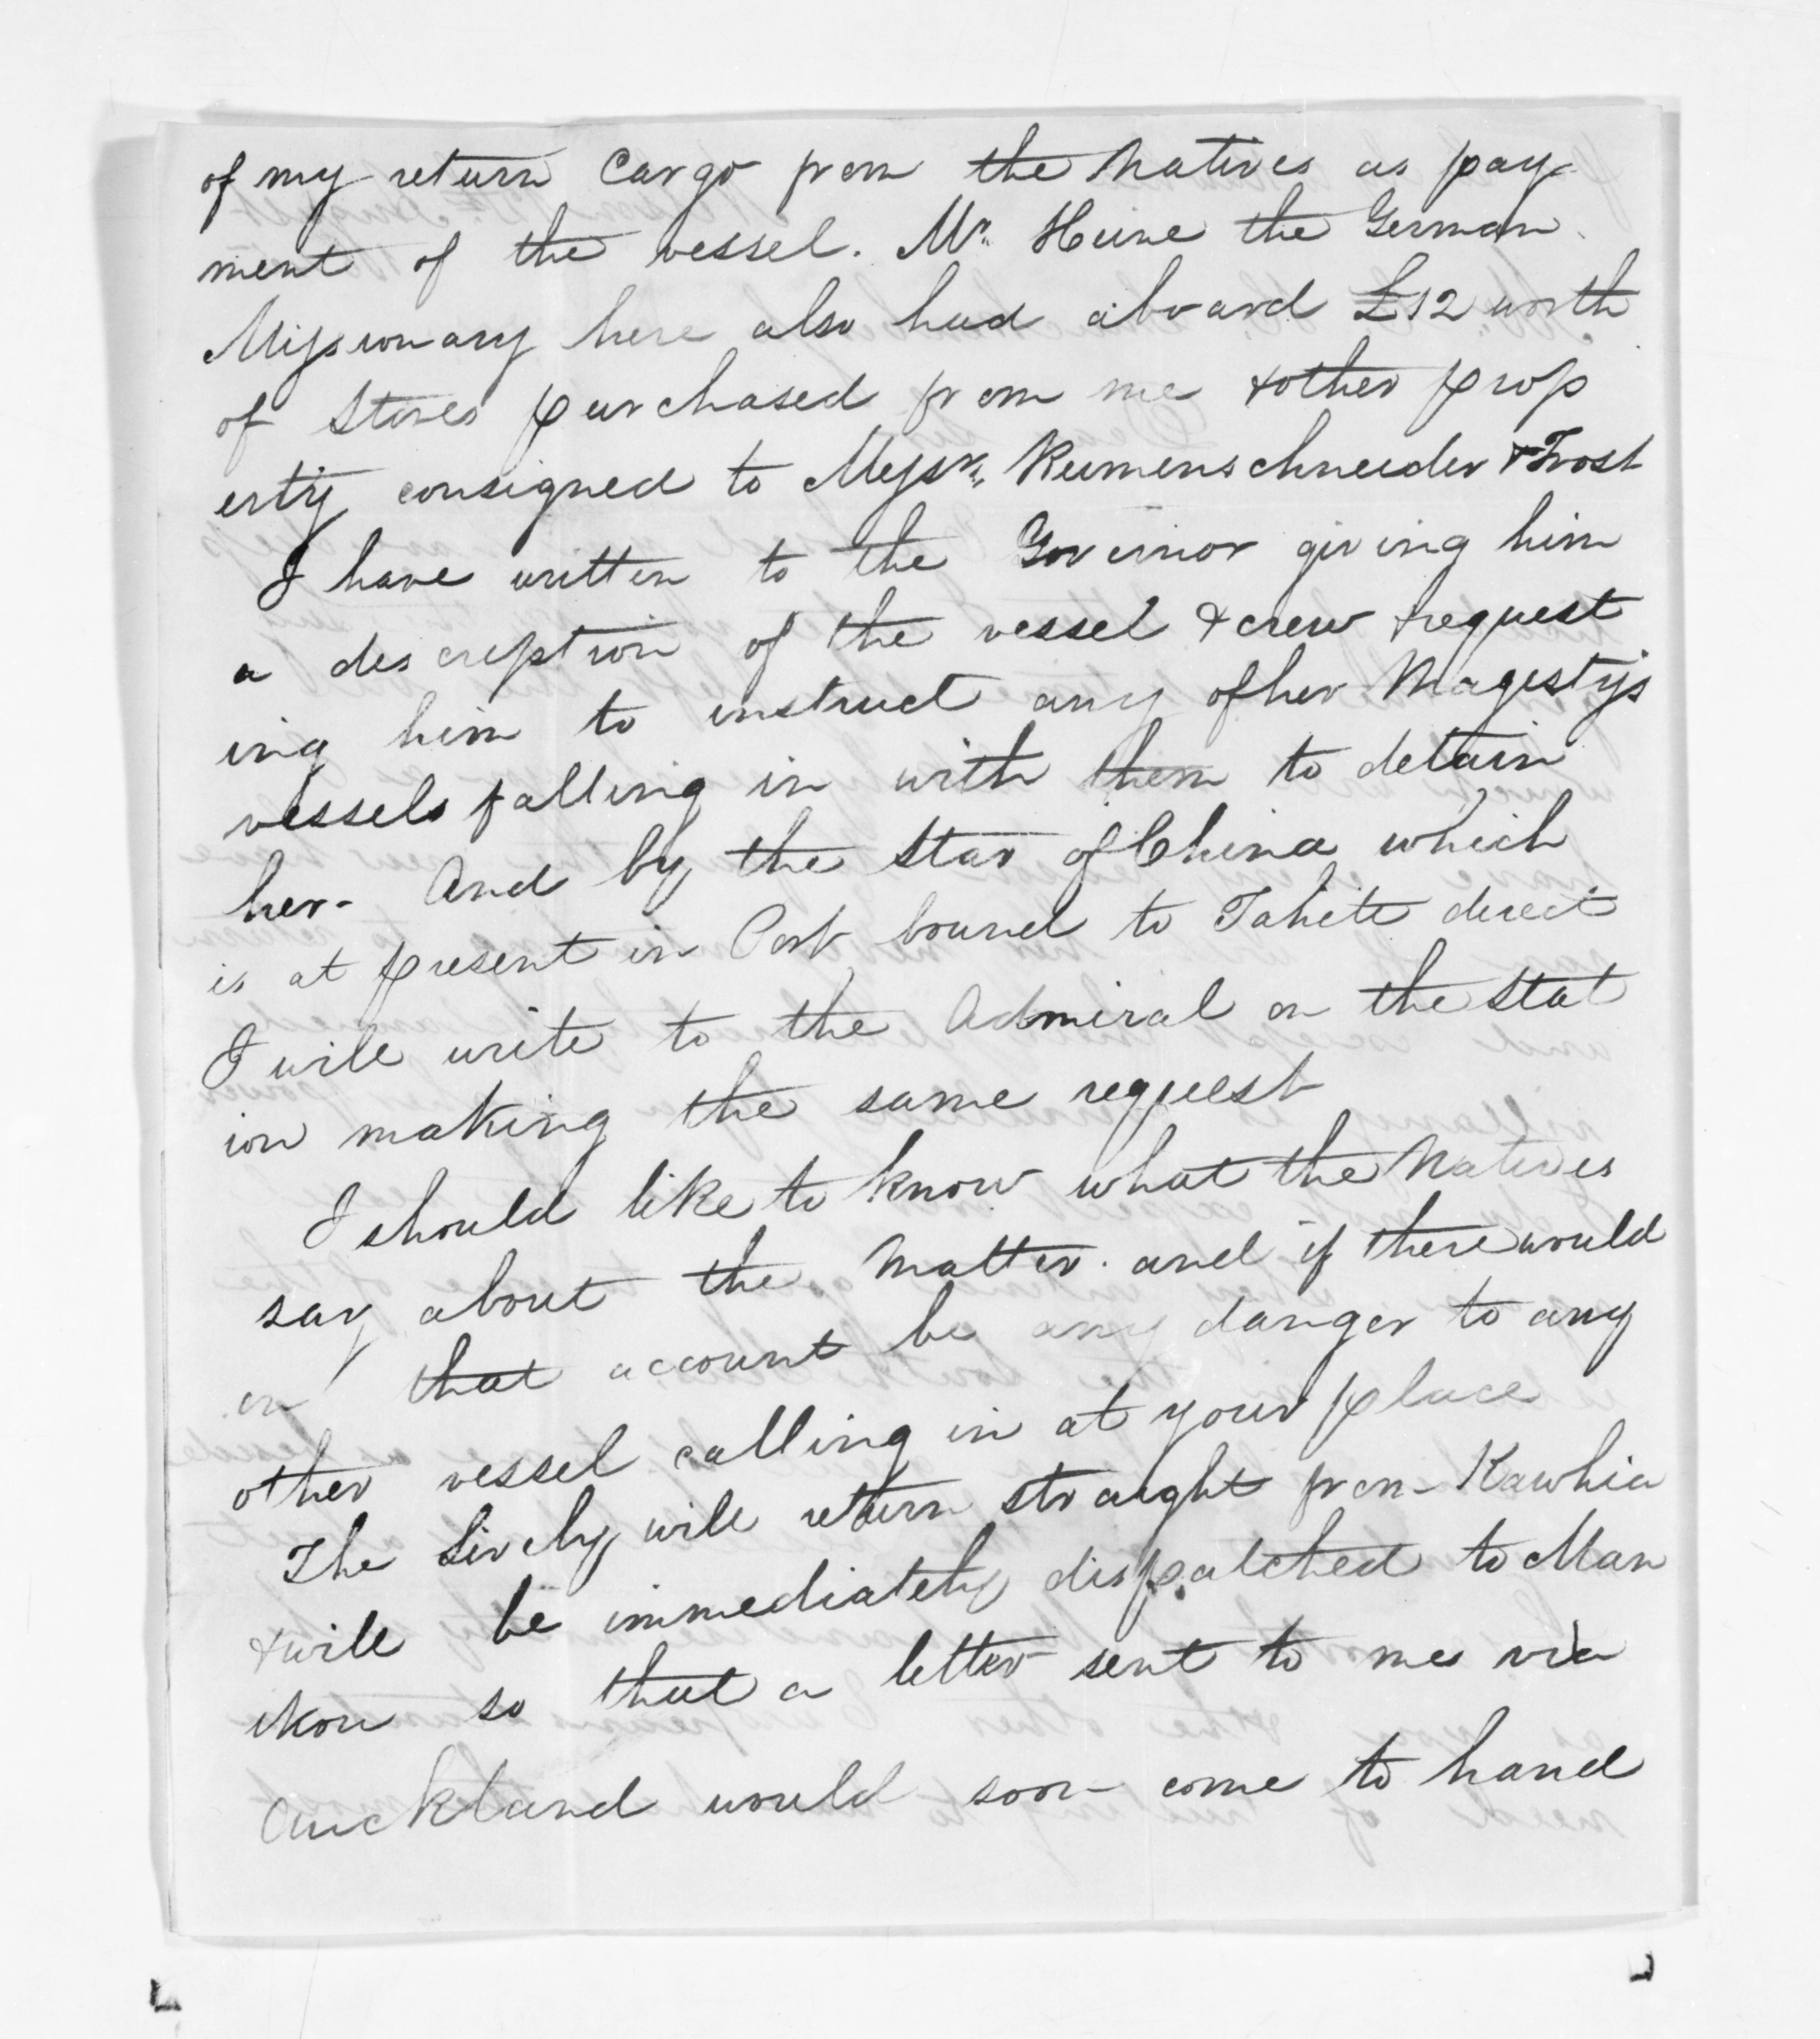 of my return Cargo from the Natives as pay
ment of the vessel. Mr. Heine the German
Missionary here also had aboard £12 worth
of Stores purchased from me & other prop
erty consigned to Messrs. Reimenschneider & Trost
I have written to the Governor giving him
a description of the vessel & crew & request
ing him to instruct any of her Magestys
vessels falling in with them to detain
her - And by the Star of China which
is at present in Port bound to Tahiti direct
I will write to the Admiral on the stat
ion making the same request
I should like to know what the Natives
say about the Matter. and if there would
on that account be any danger to any
other vessel calling in at your place
The Lively will return straight from Kawhia
& will be immediately dispatched to Man
ikou so that a letter sent to me via
Auckland would soon come to hand